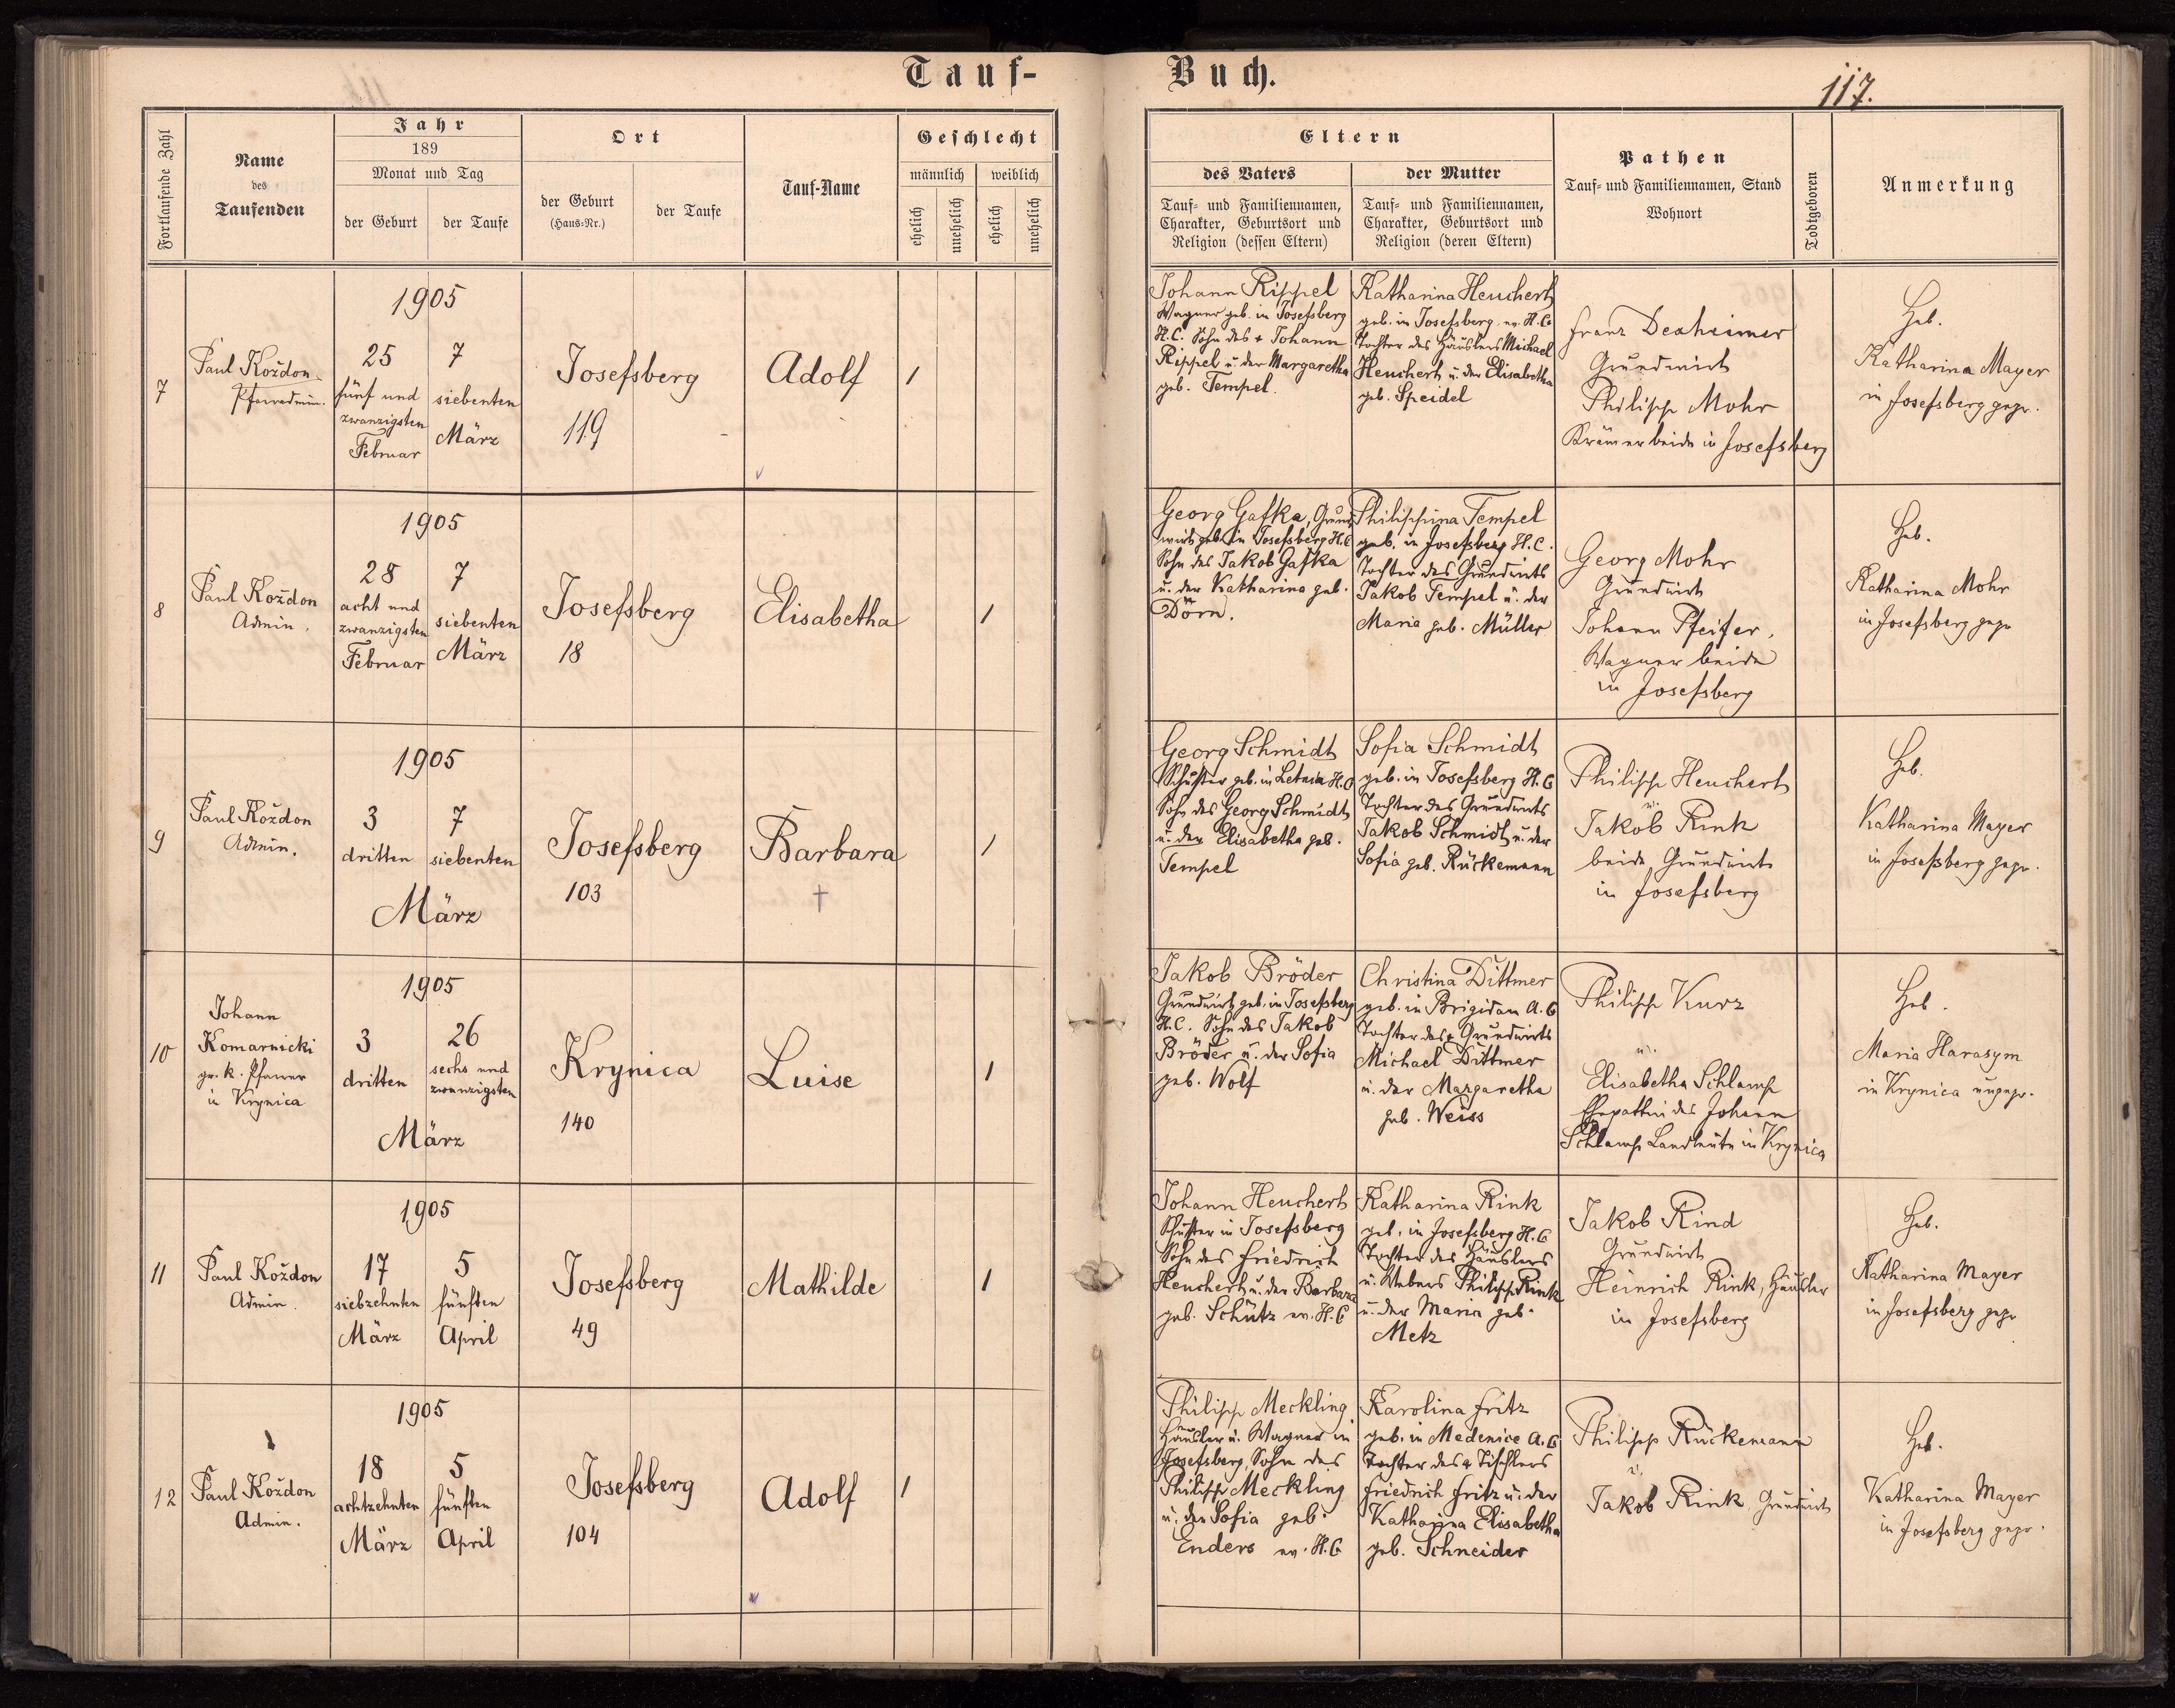 Tauf-
Buch.
117.
Fortlaufende Zahl
Name
des
Taufenden
Jahr
189
Monat und Tag
der Geburt
der Taufe
Ort
der Geburt
(Haus-Nr.)
der Taufe
Tauf-Name
Geschlecht
männlich
weiblich
ehelich
unehelich
ehelich
unehelich
Eltern
des Vaters
Tauf- und Familiennamen,
Charakter, Geburtsort und
Religion (dessen Eltern)
der Mutter
Tauf- und Familiennamen,
Charakter, Geburtsort und
Religion (deren Eltern)
Pathen
Tauf- und Familiennamen, Stand
Wohnort
Todtgeboren
Anmerkung
7
Paul Koždon
Pfarradmin.
1905
25
fünf und
zwanzigsten
Februar
7
siebenten
März
Josefsberg
119
Adolf
1
Johann Rippel
Wagner geb. in Josefsberg
H.C. Sohn des + Johann
Rippel u. der Margaretha
geb. Tempel.
Katharina Heuchert
geb. in Josefsberg ev. H.C.
Tochter des Häuslers Michael
Heuchert u. der Elisabetha
geb. Speidel
Franz Dexheimer
Grundwirt
Philipp Mohr
Krämer beide in Josefsberg
Heb.
Katharina Mayer
in Josefsberg gepr.
8
Paul Koždon
Admin.
1905
28
acht und
zwanzigsten
Februar
7
siebenten
März
Josefsberg
18
Elisabetha
1
Georg Gafka, Grund-
wirt geb. in Josefsberg H.C
Sohn des Jakob Gafka
u. der Katharina geb.
Dörn.
Philippina Tempel
geb. in Josefsberg H.C.
Tochter des Grundwirts
Jakob Tempel u. der
Maria geb. Müller
Georg Mohr
Grundwirt
Johann Pfeifer,
Wagner beide
in Josefsberg
Heb.
Katharina Mohr
in Josefsberg gepr
9
Paul Koždon
Admin.
1905
3
dritten
7
siebenten
März
Josefsberg
103
Barbara
†
1
Georg Schmidt
Schuster geb. in Letnia H.C
Sohn des Georg Schmidt
u. der Elisabetha geb.
Tempel
Sofia Schmidt
geb. in Josefsberg H.C
Tochter des Grundwirts
Jakob Schmidt u. der
Sofia geb. Rückemann
Philipp Heuchert
u.
Jakob Rink
beide Grundwirte
in Josefsberg
Heb.
Katharina Mayer
in Josefsberg gepr.
10
Johann
Komarnicki
gr. k. Pfarrer
in Krynica
1905
3
dritten
26
sechs und
zwanzigsten
März
Krynica
140
Luise
1
Jakob Bröder
Grundwirt geb. in Josefsberg
H.C. Sohn des Jakob
Bröder u. der Sofia
geb. Wolf
Christina Dittmer
geb. in Brigidau A.C
Tochter des + Grundwirts
Michael Dittmer
u. der Margaretha
geb. Weiss
Philipp Kurz
u.
Elisabetha Schlamp
Ehegattin des Johann
Schlamp Landleute in Krynica
Heb.
Maria Harasym
in Krynica ungepr.
11
Paul Koždon
Admin.
1905
17
siebzehnten
März
5
fünften
April
Josefsberg
49
Mathilde
1
Johann Heuchert
Schuster in Josefsberg
Sohn des Friedrich
Heuchert u. der Barbara
geb. Schütz ev. H.C
Katharina Rink
geb. in Josefsberg H.C
Tochter des Häuslers
u. Webers Philipp Rink
u. der Maria geb.
Metz
Jakob Rind
Grundwirt
Heinrich Rink, Häusler
in Josefsberg
Heb.
Katharina Mayer
in Josefsberg gepr
12
Paul Koždon
Admin.
1905
18
achtzehnten
März
5
fünften
April
Josefsberg
104
Adolf
1
Philipp Meckling
Häusler u. Wagner in
Josefsberg, Sohn des
Philipp Meckling
u. der Sofia geb.
Enders ev. H.C
Karolina Fritz
geb. in Medenice A.C
Tochter des + Tischlers
Friedrich Fritz u. der
Katharina Elisabetha
geb. Schneider
Philipp Rückemann
u.
Jakob Rink Grundwirt
Heb.
Katharina Mayer
in Josefsberg gepr.